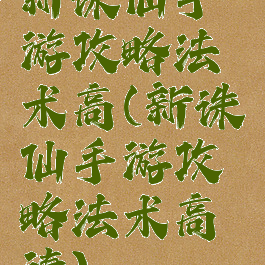 新诛仙手
游攻略法
术高(新诛
仙手游攻
略法术高